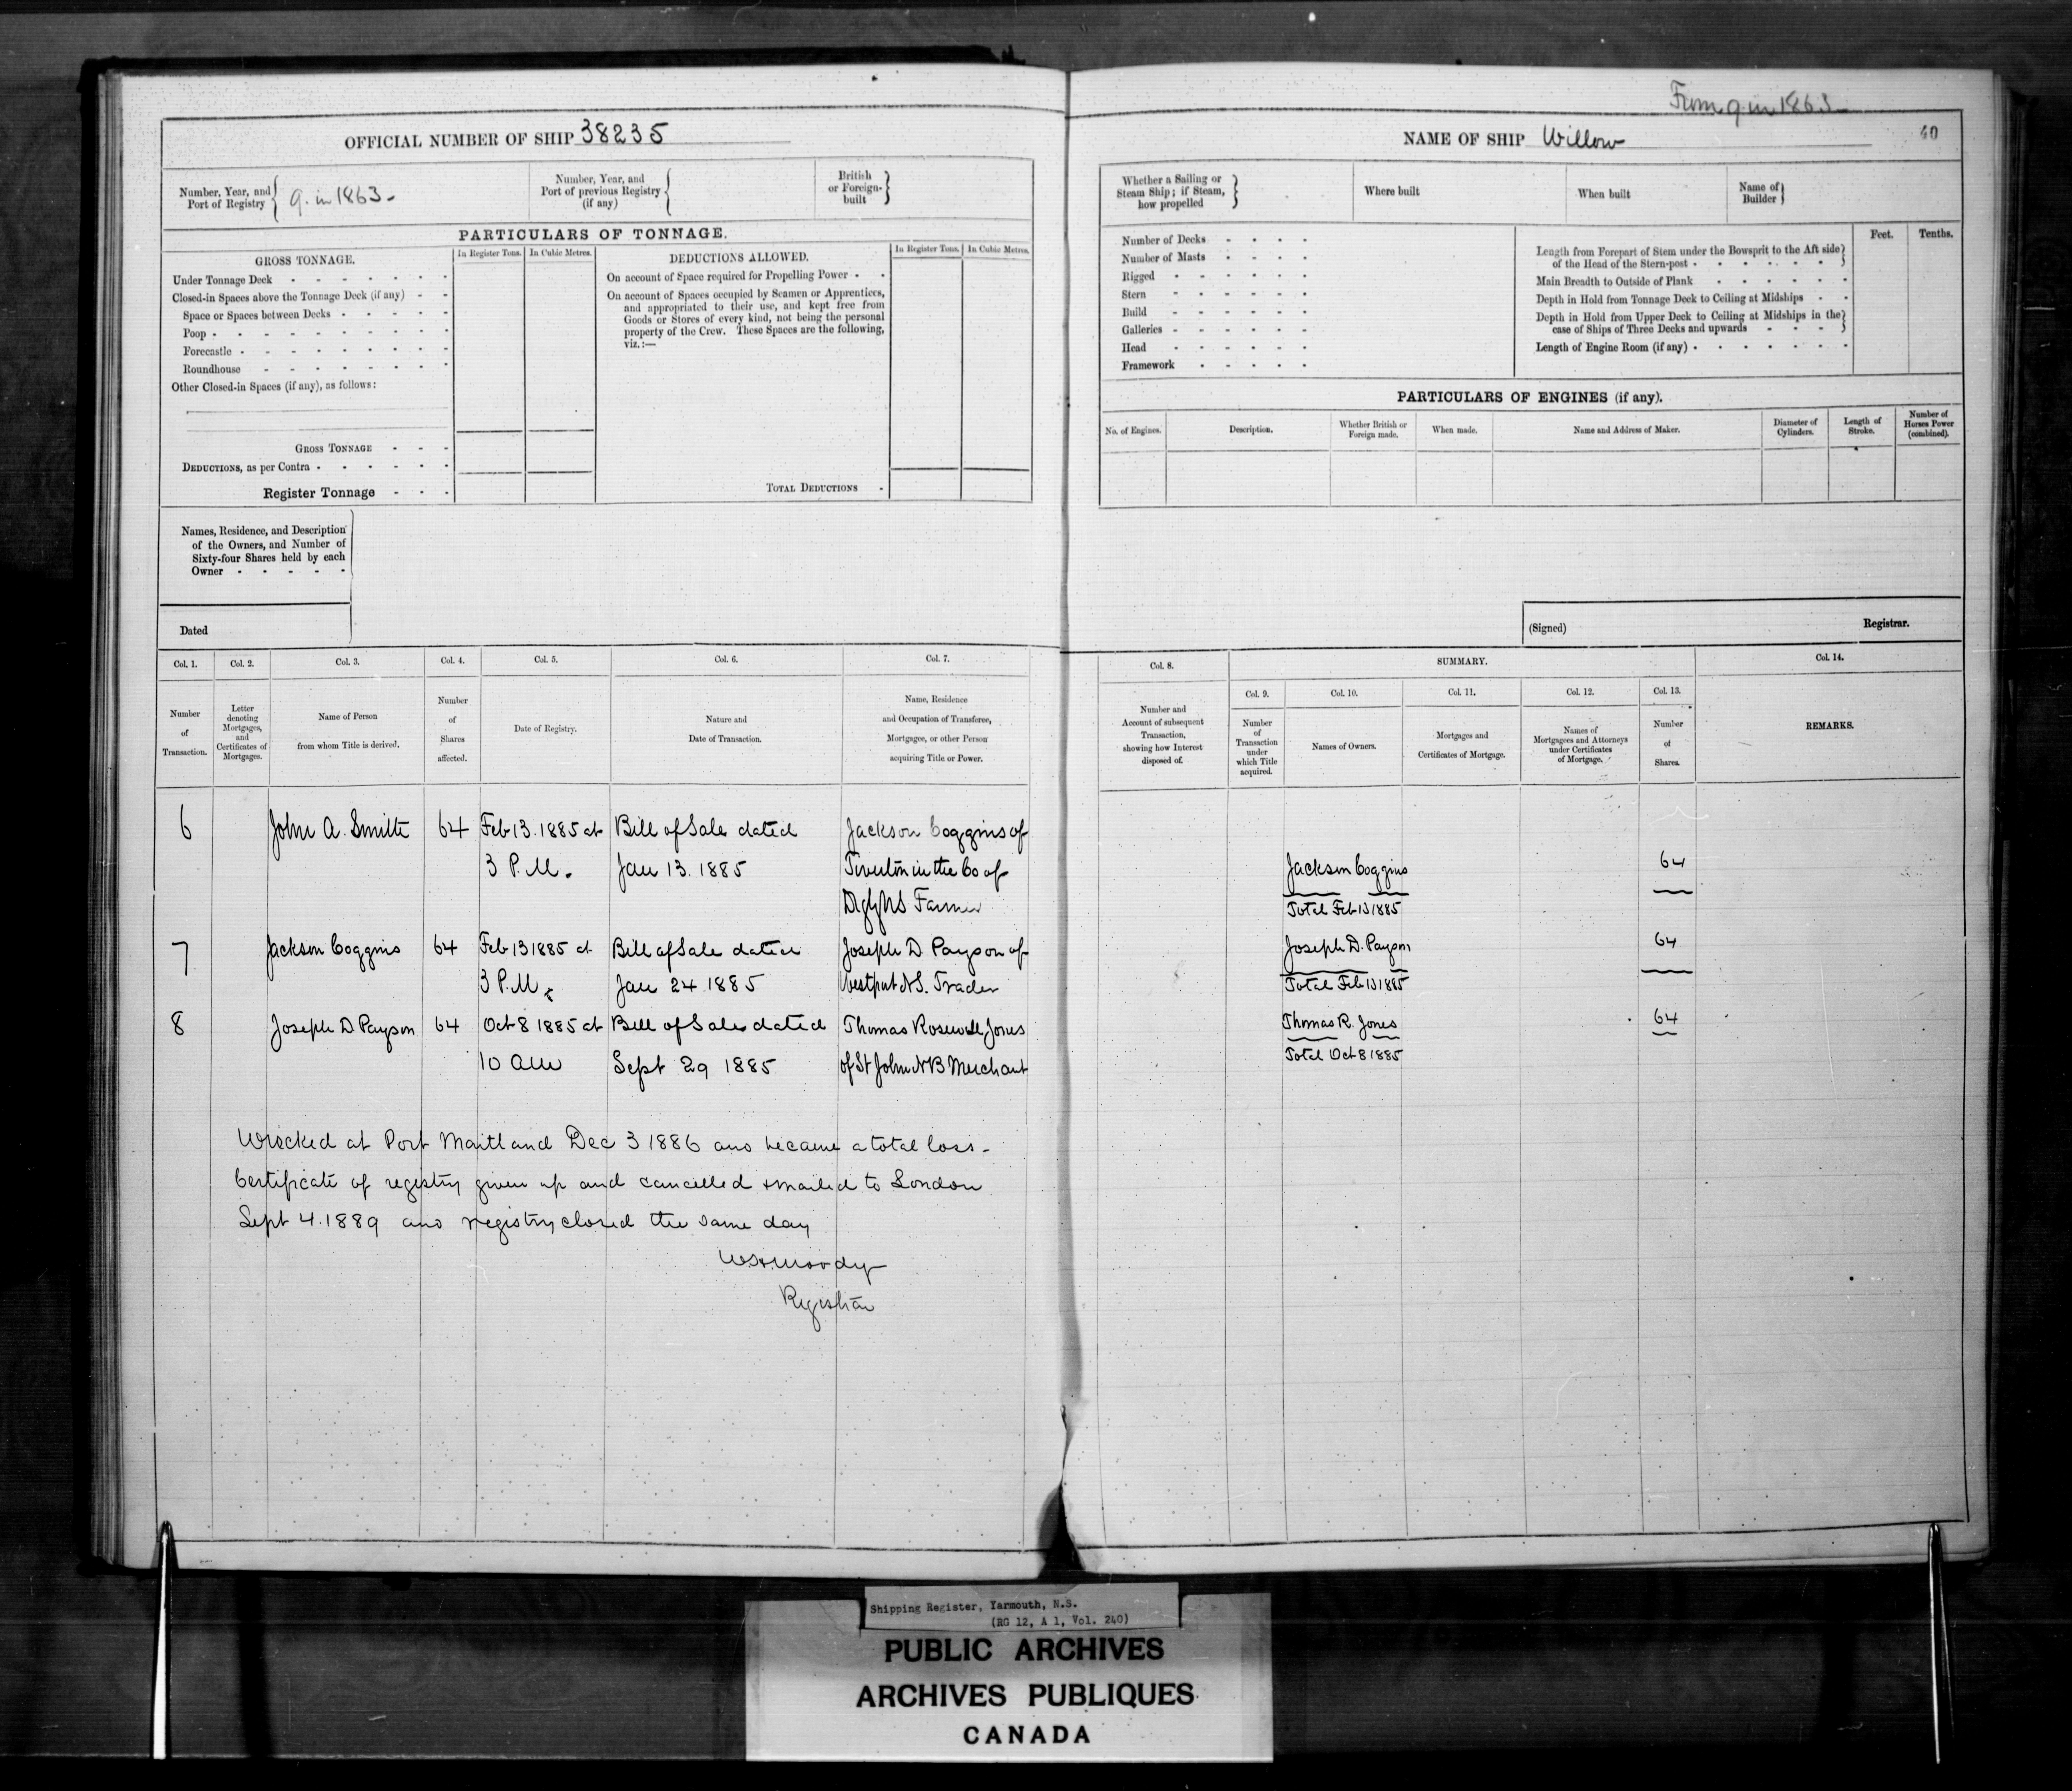 From 9 in 1863
OFFICIAL NUMBER OF SHIP 38235
NAME OF SHIP Willow
40
Number, Year, and Port of Registry { 9. in 1863 -
Number, Year, and Port of previous Registry (if any) {
British or Foreign-built }
Whether a Sailing or Steam Ship; if Steam, how propelled }
Where built
When built
Name of Builder }
PARTICULARS OF TONNAGE.
GROSS TONNAGE.
In Register Tons.
In Cubic Metres.
Under Tonnage Deck
Closed-in Spaces above the Tonnage Deck (if any)
Space or Spaces between Decks
Poop
Forecastle
Roundhouse
Other Closed-in Spaces (if any), as follows:
GROSS TONNAGE
DEDUCTIONS, as per Contra
Register Tonnage
DEDUCTIONS ALLOWED.
In Register Tons.
In Cubic Metres.
On account of Space required for Propelling Power
On account of Spaces occupied by Seamen or Apprentices,
and appropriated to their use, and kept free from
Goods or Stores of every kind, not being the personal
property of the Crew. These Spaces are the following,
viz.:—
TOTAL DEDUCTIONS
Number of Decks
Number of Masts
Rigged
Stern
Build
Galleries
Head
Framework
Feet.
Tenths.
Length from Forepart of Stem under the Bowsprit to the Aft side
of the Head of the Stern-post
Main Breadth to Outside of Plank
Depth in Hold from Tonnage Deck to Ceiling at Midships
Depth in Hold from Upper Deck to Ceiling at Midships in the
case of Ships of Three Decks and upwards
Length of Engine Room (if any)
PARTICULARS OF ENGINES (if any).
No. of Engines.
Description.
Whether British or Foreign made.
When made.
Name and Address of Maker.
Diameter of Cylinders.
Length of Stroke.
Number of Horses Power (combined).
Names, Residence, and Description
of the Owners, and Number of
Sixty-four Shares held by each
Owner
Dated
(Signed)
Registrar.
Col. 1.
Col. 2.
Col. 3.
Col. 4.
Col. 5.
Col. 6.
Col. 7.
Col. 8.
SUMMARY.
Col. 14.
Col. 9.
Col. 10.
Col. 11.
Col. 12.
Col. 13.
Number of Transaction.
Letter denoting Mortgages, and Certificates of Mortgages.
Name of Person from whom Title is derived.
Number of Shares affected.
Date of Registry.
Nature and Date of Transaction.
Name, Residence and Occupation of Transferee, Mortgagee, or other Person acquiring Title or Power.
Number and Account of subsequent Transaction, showing how Interest disposed of.
Number of Transaction under which Title acquired.
Names of Owners.
Mortgages and Certificates of Mortgage.
Names of Mortgagees and Attorneys under Certificates of Mortgage.
Number of Shares.
REMARKS.
6 John A. Smith 64 Feb 13. 1885 at Bill of Sale dated Jackson Coggins of
3 P.M. Jan 13. 1885 Tiverton in the Co of
Digby NS Farmer
Jackson Coggins 64
Total Feb 13 1885
7 Jackson Coggins 64 Feb 13 1885 at Bill of Sale dated Joseph D. Payson of
3 P.M. Jan 24 1885 Westport N.S. Trader
Joseph D. Payson 64
Total Feb 13 1885
8 Joseph D Payson 64 Oct 8 1885 at Bill of Sale dated Thomas Rosewell Jones
10 AM Sept 29 1885 of St John NB Merchant
Thomas R. Jones 64
Total Oct 8 1885
Wrecked at Port Maitland Dec 3 1886 and became a total loss -
Certificate of registry given up and cancelled & mailed to London
Sept 4. 1889 and registry closed the same day
Moody
Registrar
Shipping Register, Yarmouth, N.S.
(RG 12, A 1, Vol. 240)
PUBLIC ARCHIVES
ARCHIVES PUBLIQUES
CANADA